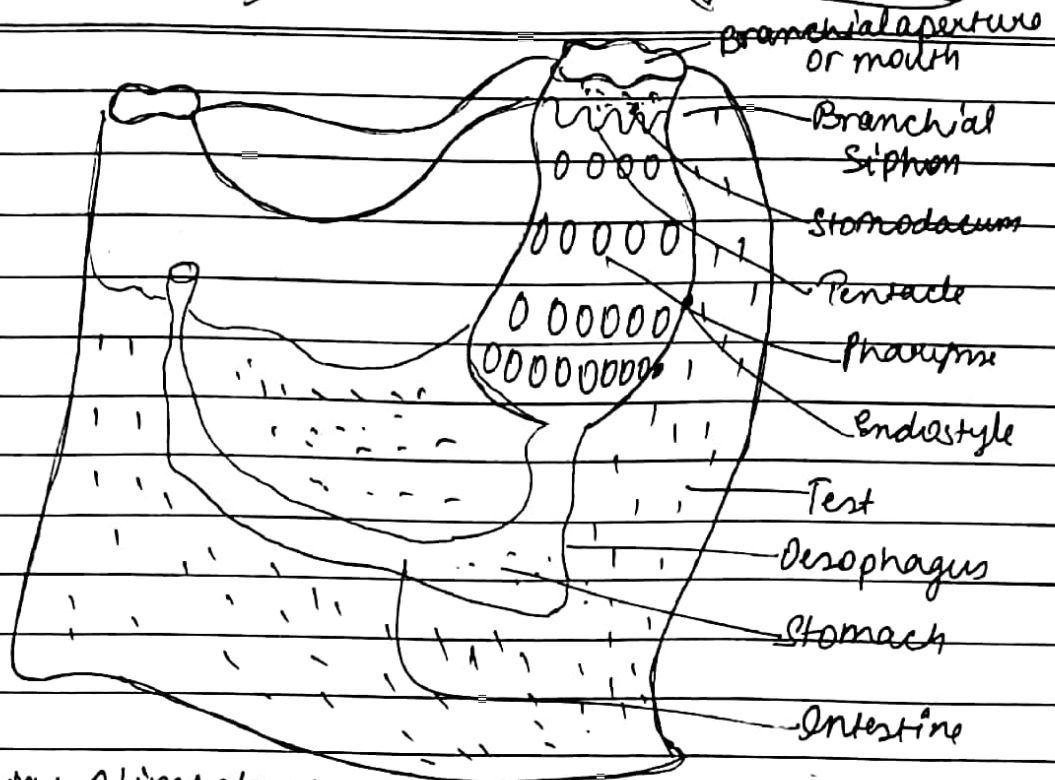 Branchial aperture
or mouth
Branchial
Siphon
Stomodaeum
Pentacle
Endostyle
Test
Oesophagus
Stomach
Intestine